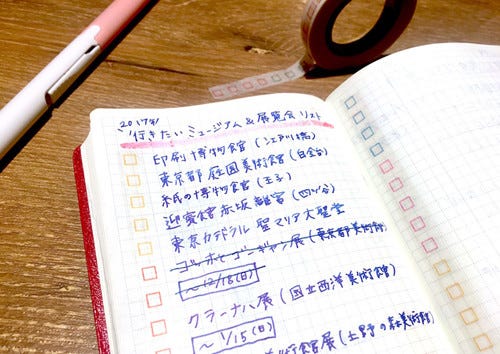 2017年
行きたいミュージアム&展覧会リスト
印刷博物館(江戸川橋)
東京都庭園美術館(白金台)
紙の博物館(王子)
迎賓館赤坂離宮(四ツ谷)
東京カテドラル聖マリア大聖堂
ゴッホとゴーギャン展(東京都美術館)
~12/18(日)
クラーナハ展(国立西洋美術館)
~1/15(日)
美術館展(上野の森美術館)